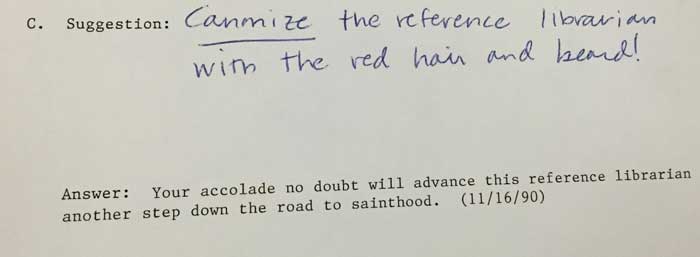 C. Suggestion: Canmize the reference librarian
with the red hair and beard!
Answer: Your accolade no doubt will advance this reference librarian
another step down the road to sainthood. (11/16/90)